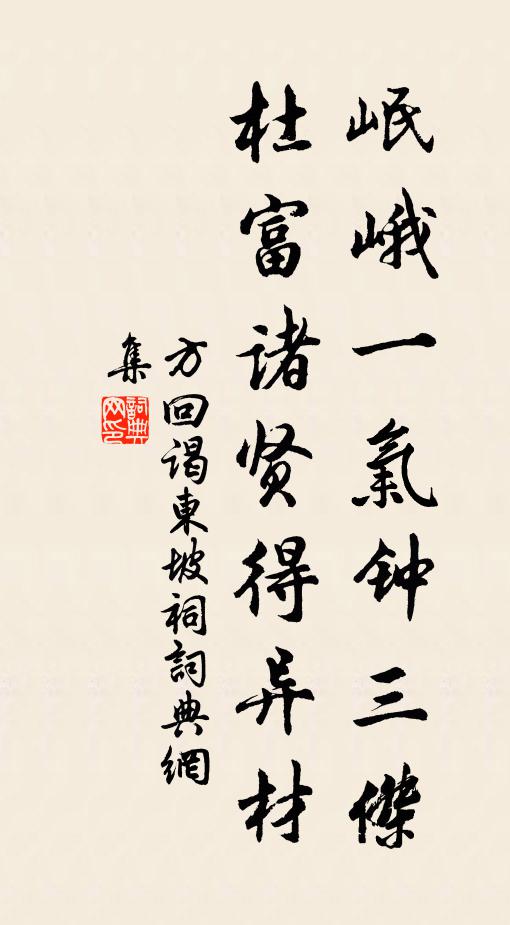 岷峨一氣钟三傑
杜富诸贤得异材
方回谒東坡祠詞典網
集
詞典网印